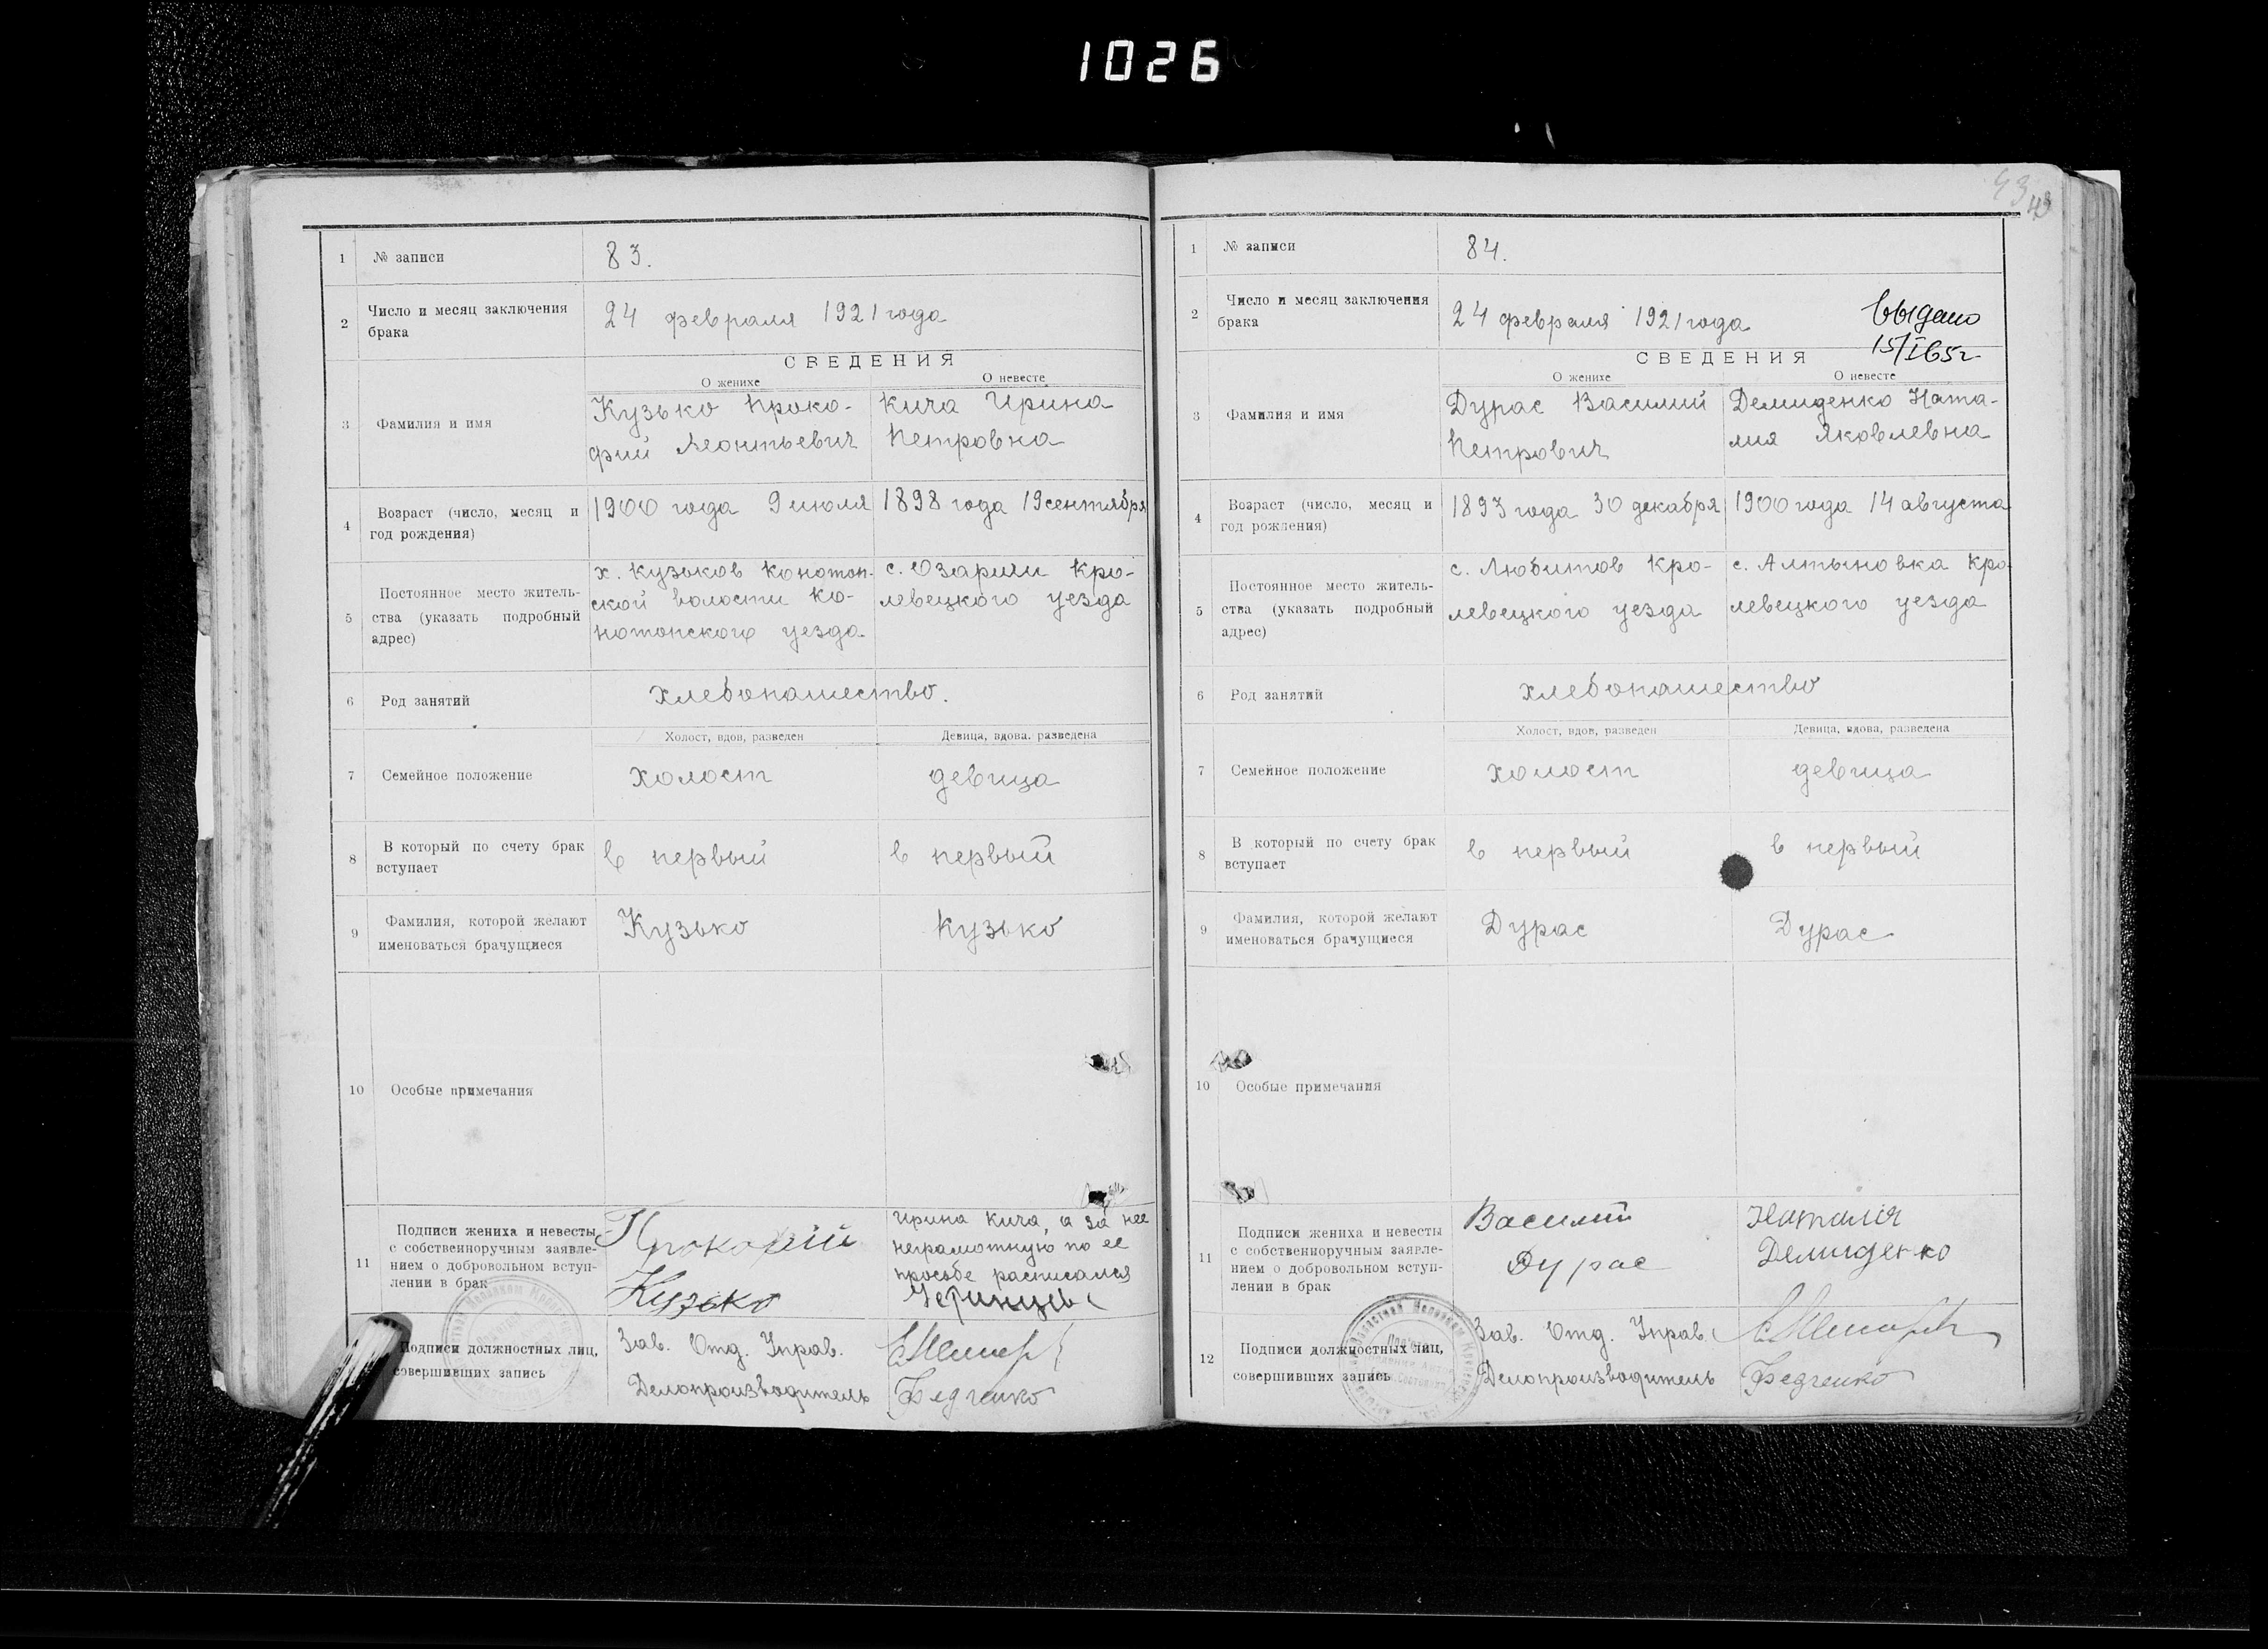 1026
43
1 № записи 83.
2 Число и месяц заключения
брака
24 февраля 1921 года
СВЕДЕНИЯ
О женихе О невесте
3 Фамилия и имя
Кузько Проко-
фий Леонтьевич
Кича Ирина
Петровна
4 Возраст (число, месяц и
год рождения)
1900 года 9 июля
1898 года 19 сентября
5 Постоянное место житель-
ства (указать подробный
адрес)
х. Кузьков Конотоп-
ской волости Ко-
нотопского уезда
с. Озариги Кро-
левецкого уезда
6 Род занятий
хлебопашество.
Холост, вдов, разведен Девица, вдова, разведена
7 Семейное положение
холост девица
8 В который по счету брак
вступает
в первый в первый
9 Фамилия, которой желают
именоваться брачущиеся
Кузько Кузько
10 Особые примечания
11 Подписи жениха и невесты
с собственноручным заявле-
нием о добровольном вступ-
лении в брак
Прокофій
Кузько
Ирина Кича, а за нее
неграмотную по ее
просьбе расписался
Подписи должностных лиц,
совершивших запись
Зав. Отд. Управ.
Делопроизводитель Федченко
1 № записи 84.
2 Число и месяц заключения
брака
24 февраля 1921 года
выдано
15/I 65г
СВЕДЕНИЯ
О женихе О невесте
3 Фамилия и имя
Дурас Василий
Петрович
Демиденко Ната-
лия Яковлевна
4 Возраст (число, месяц и
год рождения)
1893 года 30 декабря
1900 года 14 августа
5 Постоянное место житель-
ства (указать подробный
адрес)
с. Любитов Кро-
левецкого уезда
с. Алтыновка Кро-
левецкого уезда
6 Род занятий
хлебопашество
Холост, вдов, разведен Девица, вдова, разведена
7 Семейное положение
холост девица
8 В который по счету брак
вступает
в первый в первый
9 Фамилия, которой желают
именоваться брачущиеся
Дурас Дурас
10 Особые примечания
11 Подписи жениха и невесты
с собственноручным заявле-
нием о добровольном вступ-
лении в брак
Василий
Дурас
Наталія
Демиденко
12 Подписи должностных лиц,
совершивших запись
Зав. Отд. Управ.
Делопроизводитель Федченко